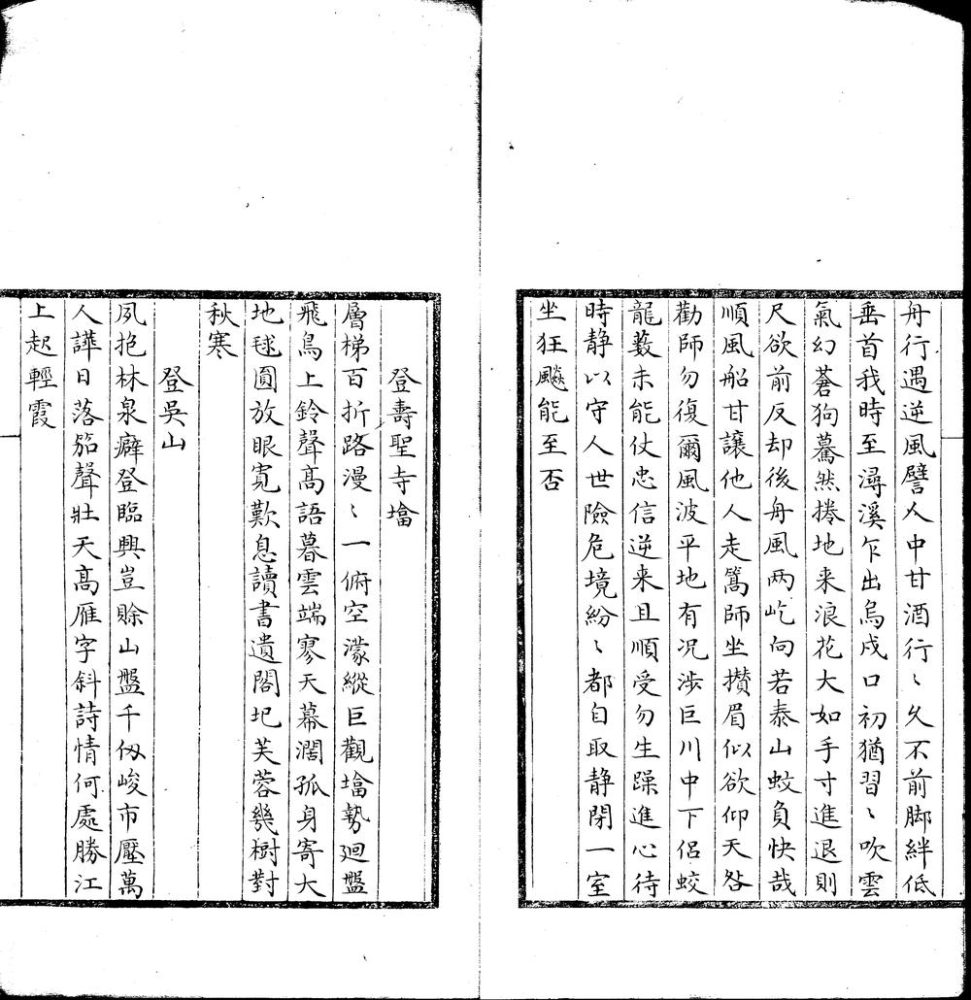 舟行遇逆風譬人中甘酒行〻久不前脚絆低
垂首我時至潯溪乍出烏戍口初猶習〻吹雲
氣幻蒼狗驀然捲地来浪花大如手寸進退則
尺欲前反却後舟風两屹向若泰山蚊負快哉
順風船甘讓他人走篙師坐攢眉似欲仰天咎
勸師勿復爾風波平地有况涉巨川中下侶蛟
龍藪未能仗忠信逆来且順受勿生躁進心待
時静以守人世險危境紛〻都自取静閉一室
坐狂飈能至否
登壽聖寺墖
層梯百折路漫〻一俯空濛縱巨觀墖勢迴盤
飛鳥上鈴聲高語暮雲端寥天幕濶孤身寄大
地毬圓放眼寬歎息讀書遺閣圮芙蓉幾樹對
秋寒
登吳山
夙抱林泉癖登臨興豈賖山盤千仭峻市壓萬
人譁日落笳聲壯天高雁字斜詩情何處勝江
上起輕霞